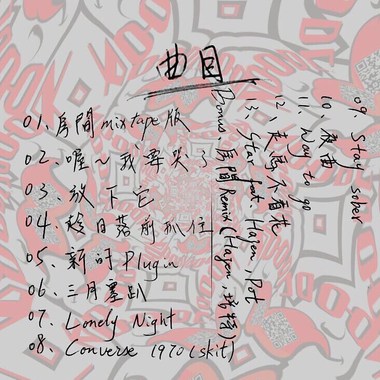 曲目
01. 房間 mixtape版
02. 喔～我要哭了
03. 放下它
04. 趁日落前抓住
05. 新的 Plugin
06. 三月墨趴
07. Lonely Night
08. Converse 1970 (skit)
09. Stay sober
10. 夜曲
11. Way to go
12. 走馬不看花
13. Star feat. Hajen, Pot
Bonus. 房間 Remix (Hajen,